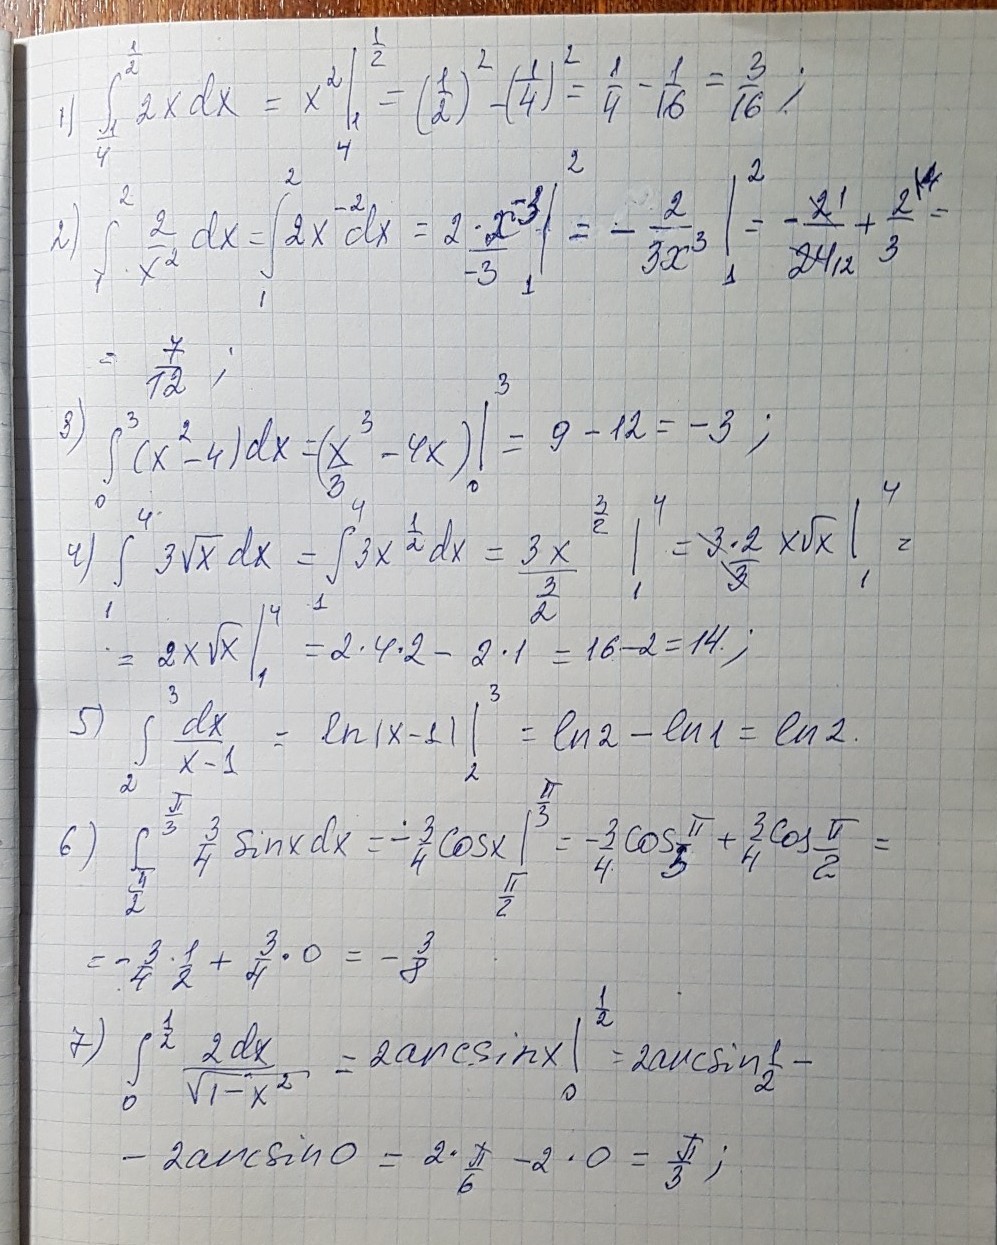 1) ∫_{1/4}^{1/2} 2x dx = x² |_{1/4}^{1/2} = (1/2)² - (1/4)² = 1/4 - 1/16 = 3/16 ;
2) ∫_1^2 2/x² dx = ∫_1^2 2x^{-2} dx = 2·x^{-3}/-3 |_1^2 = - 2/(3x³) |_1^2 = - 2^1/24_{12} + 2^{\4}/3 =
= 7/12 ;
3) ∫_0^3 (x² - 4) dx = (x³/3 - 4x) |_0^3 = 9 - 12 = -3 ;
4) ∫_1^4 3√x dx = ∫_1^4 3x^{1/2} dx = 3x^{3/2}/(3/2) |_1^4 = 3·2/3 x√x |_1^4 =
= 2x√x |_1^4 = 2·4·2 - 2·1 = 16 - 2 = 14 ;
5) ∫_2^3 dx/(x-1) = ln|x-1| |_2^3 = ln2 - ln1 = ln2.
6) ∫_{π/2}^{π/3} 3/4 sinx dx = -3/4 cosx |_{π/2}^{π/3} = -3/4 cos π/3 + 3/4 cos π/2 =
= -3/4 · 1/2 + 3/4 · 0 = -3/8
7) ∫_0^{1/2} 2dx/√(1-x²) = 2arcsinx |_0^{1/2} = 2arcsin 1/2 -
- 2arcsin0 = 2·π/6 - 2·0 = π/3 ;